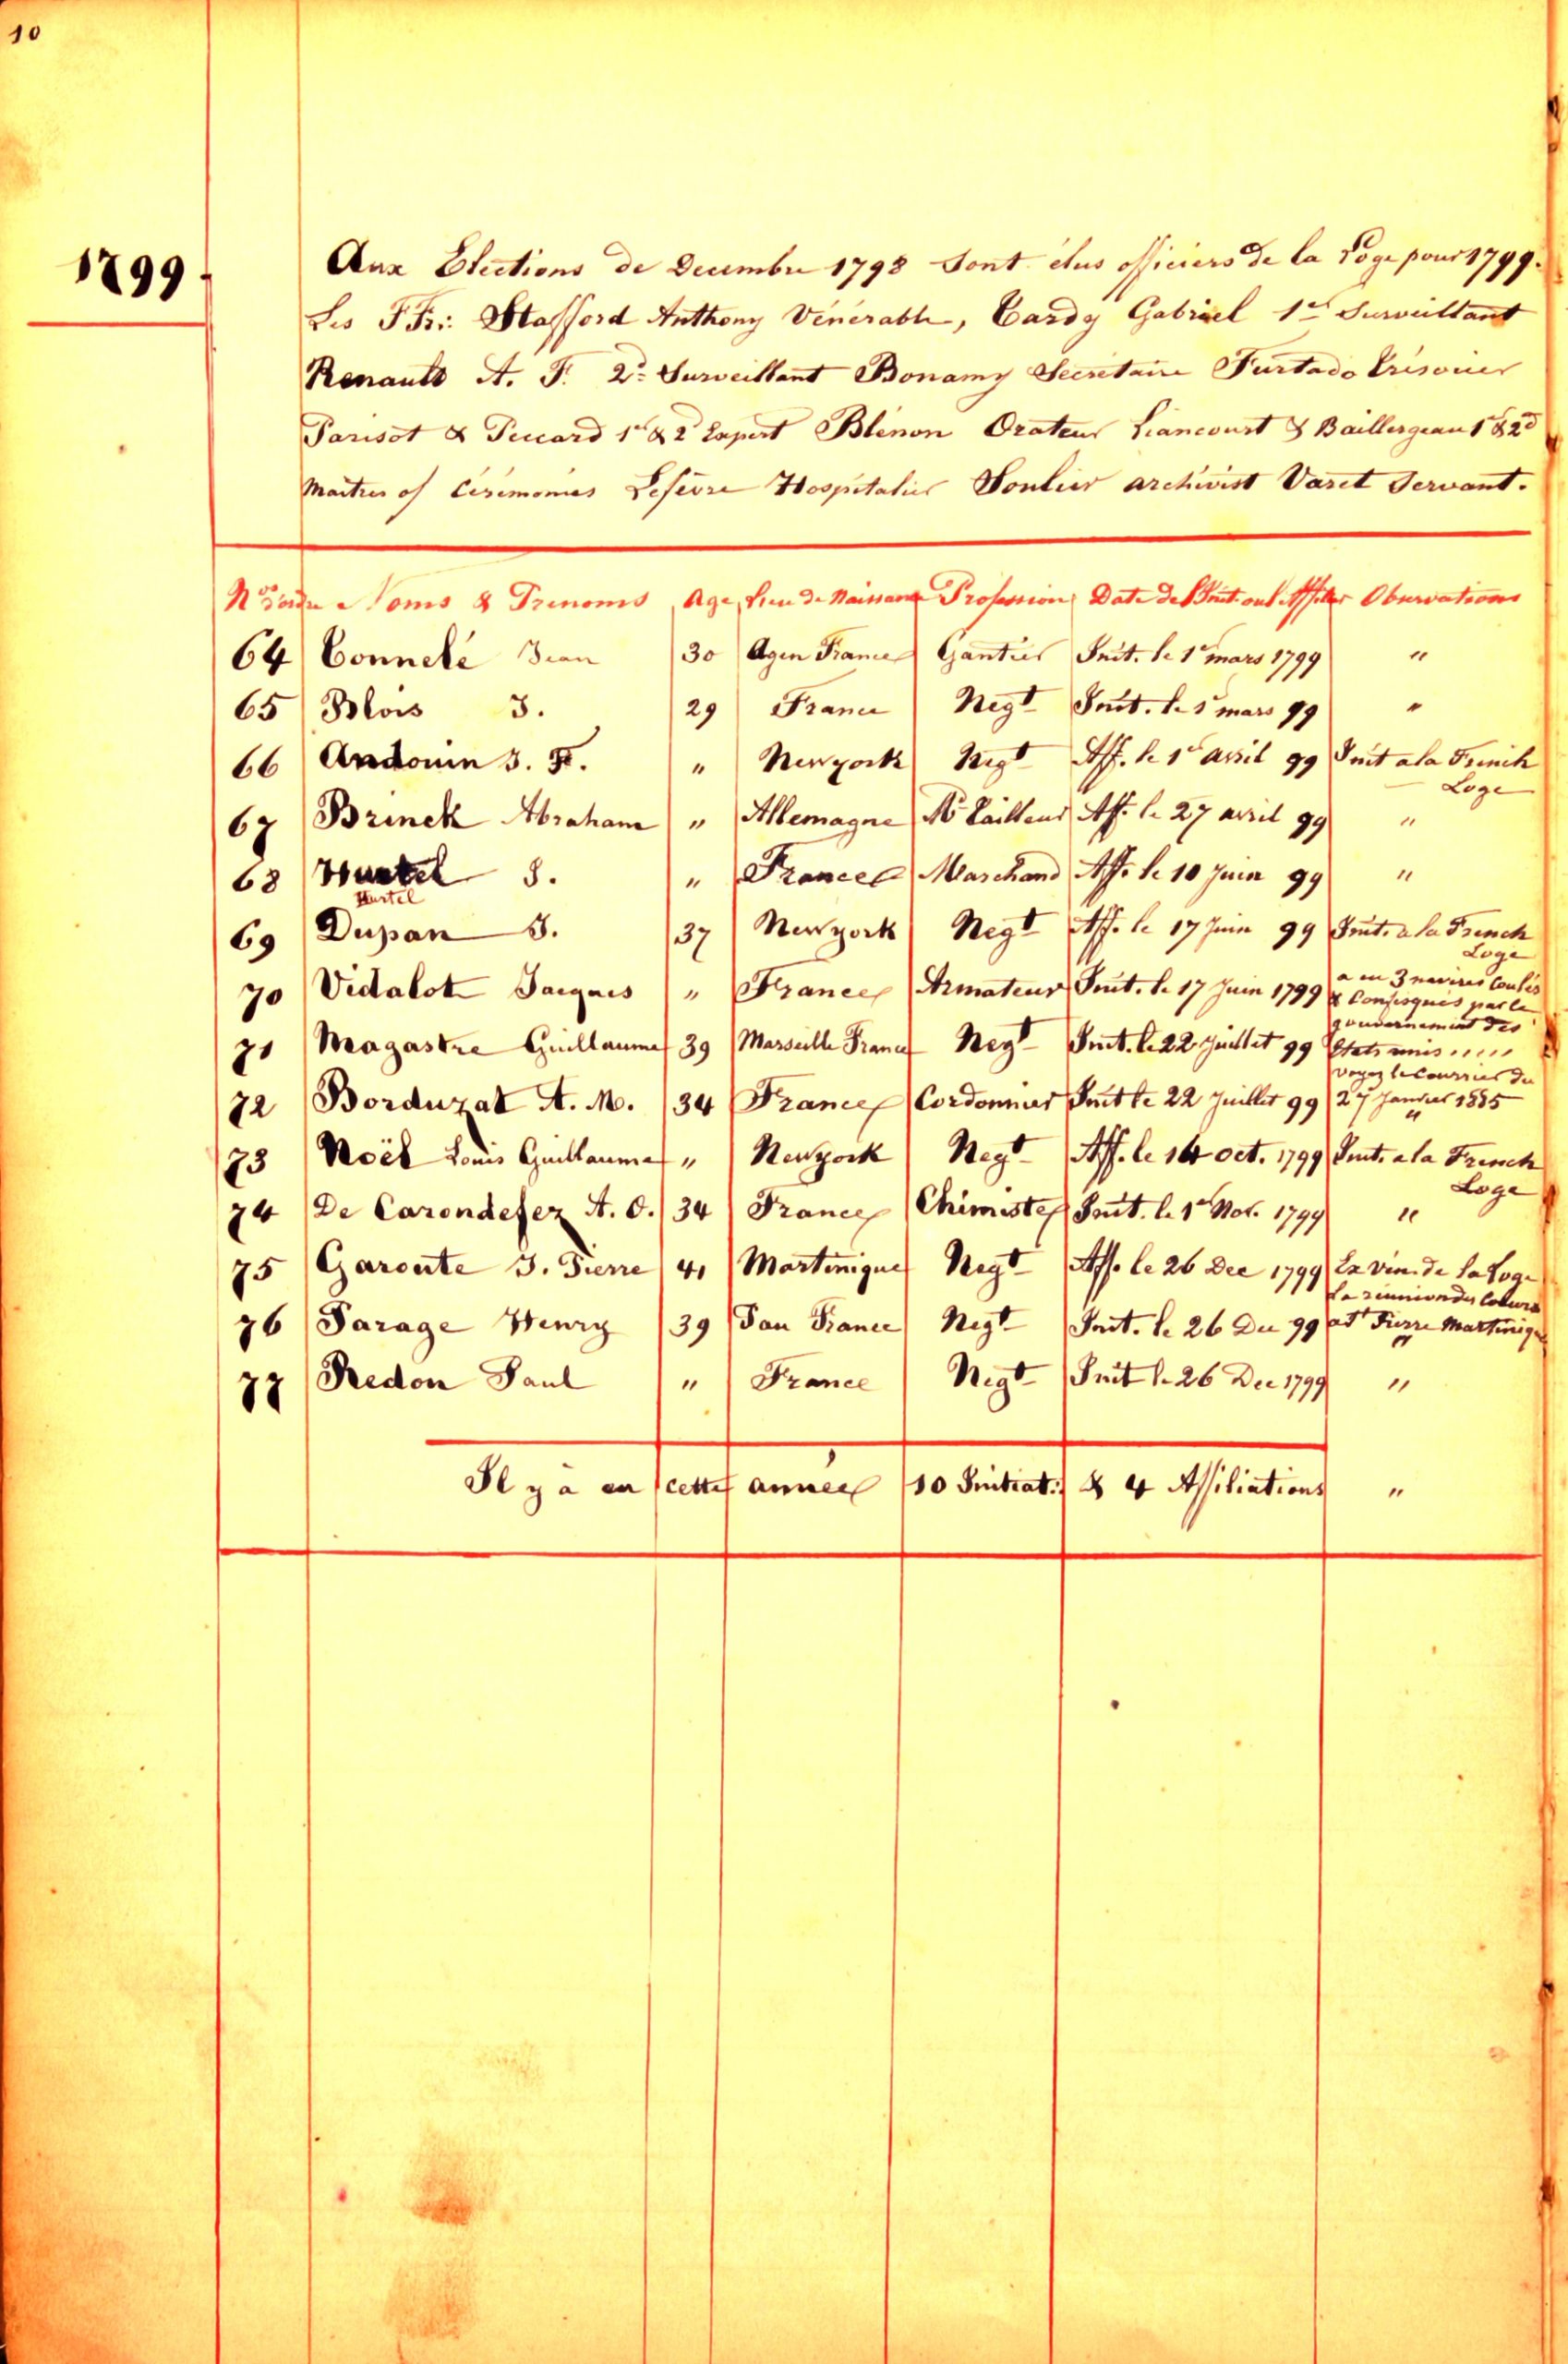 10
1799.
Aux Elections de Decembre 1798 Sont élus officiers de la Loge pour 1799.
Les FFr: Stafford Anthony Vénérable, Cardy Gabriel 1er Surveillant
Renault A. F. 2d Surveillant Bonamy Secrétaire Furtado Trésorier
Parisot & Peccard 1er & 2d Expert Blénon Orateur Liancourt & Baillergeau 1 & 2d
Maitres of Cérémonies Lefevre Hospitalier Soulier archivist Varet Servant.
No d'ordre Noms & Prenoms Age, Lieu de Naissance Profession Date de l'Init. ou l'Affil. Observations
64 Connelé Jean 30 Agen France Gantier Init. le 1er mars 1799 "
65 Blois J. 29 France Negt Init. le 1er mars 99 "
66 Andouin J. F. " Newyork Negt Aff. le 1er avril 99 Init a la French
Loge
67 Brinck Abraham " Allemagne Md Tailleur Aff. le 27 avril 99 "
68 Hurtel J. " France Marchand Aff. le 10 juin 99 "
Hurtel
69 Dupan J. 37 Newyork Negt Aff. le 17 Juin 99 Init. a la French
Loge
70 Vidalot Jacques " France Armateur Init. le 17 Juin 1799 a eu 3 navires Coulés
& Confisqués par le
gouvernement des
71 Magastre Guillaume 39 Marseille France Negt Init. le 22 Juillet 99 Etats unis .....
voyez le Courrier du
72 Borduzat A. M. 34 France Cordonnier Init le 22 Juillet 99 27 Janvier 1885
"
73 Noël Louis Guillaume " Newyork Negt Aff. le 14 oct. 1799 Init. a la French
Loge
74 De Carondefez A. O. 34 France Chimiste Init. le 1er Nov. 1799 "
75 Garoute J. Pierre 41 Martinique Negt Aff. le 26 Dec 1799 Ex Vén. de la Loge
La réunion des Coeurs
76 Parage Henry 39 Pau France Negt Init. le 26 Dec 99 a St Pierre Martinique
"
77 Redon Paul " France Negt Init le 26 Dec 1799 "
Il y a eu cette année 10 Initiat: & 4 Affiliations "